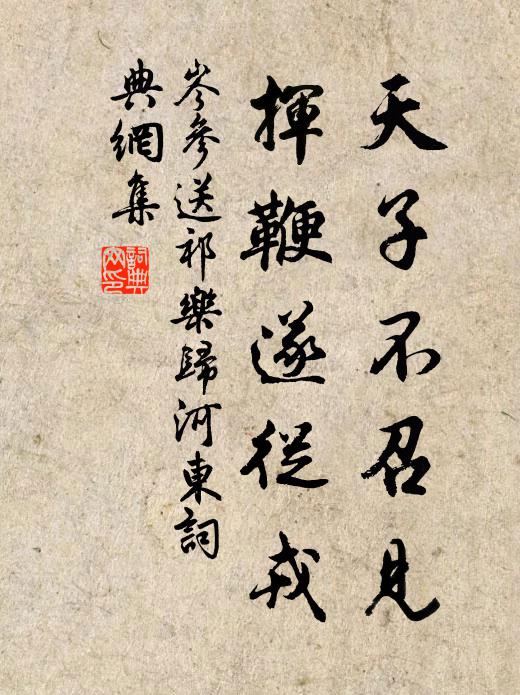 天子不召見
揮鞭遂從戎
岑參送祁樂歸河東詞
典網集
詞典